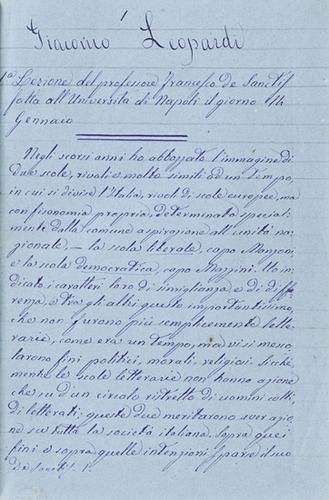 Giacomo Leopardi
1a Lezione del professore Francesco de Sanctis
fatta all'Università di Napoli il giorno 14
Gennaio
Negli scorsi anni ho abbozzato l'immagine di
due scole, rivali e molto simili ad un tempo,
in cui si divise l'Italia, rivol di scole europee, ma
con fisonomia propria, determinata special=
mente dalla comune aspirazione all'unità na=
zionale, — la scola liberale, capo Manzoni
e la scola democratica, capo Mazzini. Ho in=
dicato i caratteri loro di simiglianza e di diffe=
renza, e tra gli altri questo importantissimo,
che non furono più semplicemente lette=
rarie, come era un tempo, ma vi si mesco=
larono fini politici, morali, religiosi. Sicchè
mentre le scole letterarie non hanno azione
che su d'un circolo ristretto di uomini colti,
di letterati, queste due meritarono aver azio=
ne su tutta la società italiana. Sopra quei
fini e sopra quelle intenzioni spare il suo